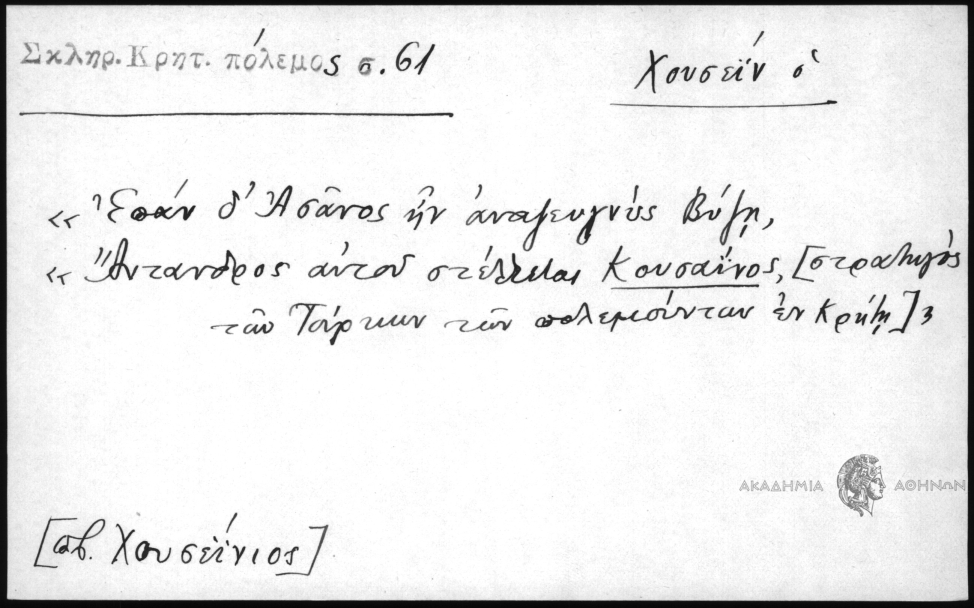 Σκληρ. Κρητ. πόλεμος σ. 61
Χουσεΐν ὁ
« Ἐπάν δ' Ἀσᾶνος ἦν ἀναζευγνὺς Βύζῃ,
« Ἄντανδρος αὐτοῦ στέλλεται Κουσαΐνος, [στρατηγὸς
τῶν Τούρκων τῶν πολεμούντων ἐν Κρήτῃ]»
ΑΚΑΔΗΜΙΑ ΑΘΗΝΩΝ
[πβ. Χουσεΐνιος]